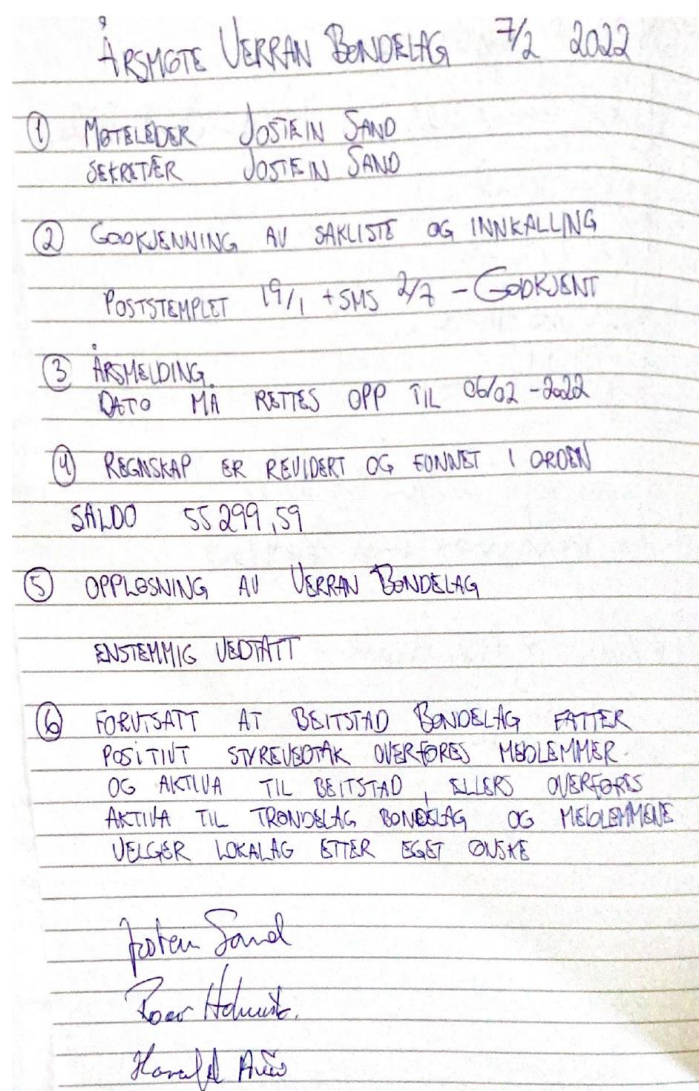 ÅRSMØTE VERRAN BONDELAG 7/2 2022
① MØTELEDER JOSTEIN SAND
SEKRETÆR JOSTEIN SAND
② GODKJENNING AV SAKLISTE OG INNKALLING
POSTSTEMPLET 19/1 + SMS 2/7 - GODKJENT
③ ÅRSMELDING.
DATO MÅ RETTES OPP TIL 06/02 - 2022
④ REGNSKAP ER REVIDERT OG FUNNET I ORDEN
SALDO 55 299,59
⑤ OPPLØSNING AV VERRAN BONDELAG
ENSTEMMIG VEDTATT
⑥ FORUTSATT AT BEITSTAD BONDELAG FATTER
POSITIVT STYREVEDTAK OVERFØRES MEDLEMMER
OG AKTIVA TIL BEITSTAD, ELLERS OVERFØRES
AKTIVA TIL TRØNDELAG BONDELAG OG MEDLEMMENE
VELGER LOKALAG ETTER EGET ØNSKE
Jostein Sand
Harald